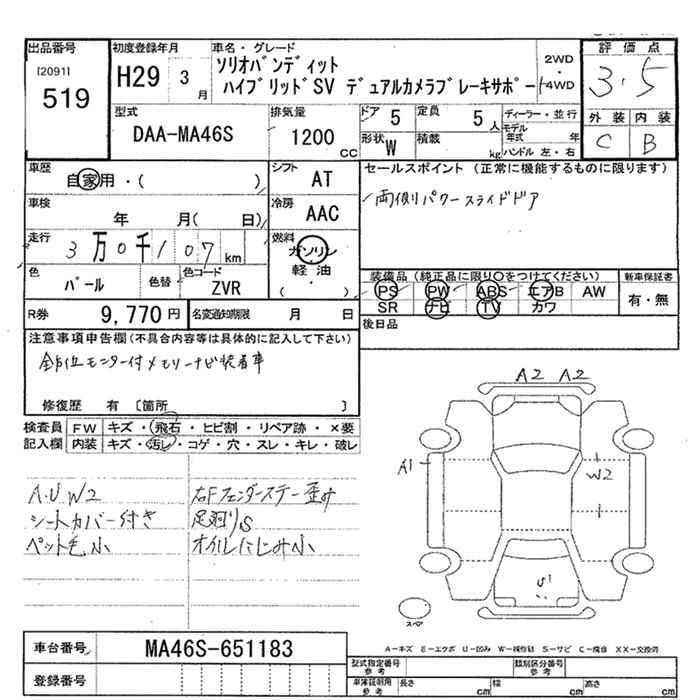 出品番号 初度登録年月 車名・グレード 2WD ・ 4WD 評価点
[2091] 519 H29 3月 ソリオバンディット
ハイブリッドSV デュアルカメラブレーキサポート 3.5
型式 排気量 ドア 5 定員 5人 ディーラー・並行 外装 内装
DAA-MA46S 1200cc 形状 W 積載 kg モデル年式 年 C B
ハンドル 左・右
車歴 シフト セールスポイント(正常に機能するものに限ります)
自家用・( ) AT 両側パワースライドドア
車検 年 月( 日) 冷房 AAC
走行 3万0千107km 燃料 ガソリン
軽油
( )
色 パール 色替 色コード ZVR
装備品(純正品に限り○をつけてください) 新車保証書
PS PW ABS エアB AW 有・無
SR ナビ TV カワ
R券 9,770円 名変通知期限 月 日 後日品
注意事項申告欄(不具合内容等は具体的に記入して下さい)
全方位モニター付メモリーナビ装着車
修復歴 有 〔箇所 〕
検査員 FW キズ・飛石・ヒビ割・リペア跡・×要
記入欄 内装 キズ・汚レ・コゲ・穴・スレ・キレ・破レ
A2 A2
A1 W2
A.U W2 右Fフェンダーステー歪み
シートカバー付き 足廻りS
ペット毛小 オイルにじみ小
U1
スペア
車台番号 MA46S-651183
A−キズ E−エクボ U−凹み W−補修跡 S−サビ C−腐食 XX−交換済
登録番号 型式指定番号 参考 類別区分番号 参考
車庫証明用 参考 長さ cm 幅 cm 高さ cm